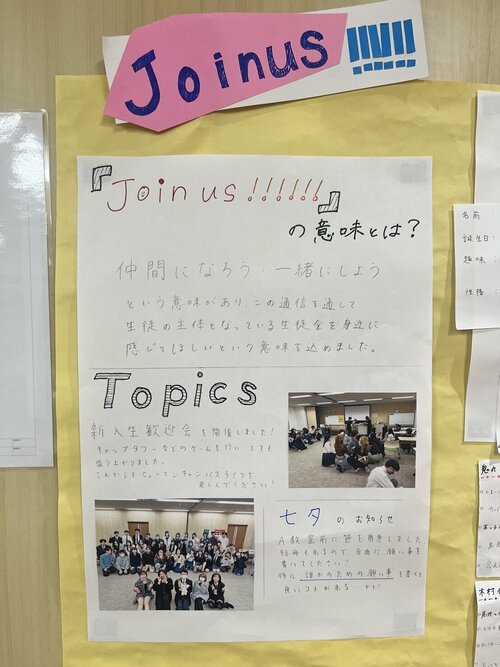 Joinus !!!!!!
『Join us!!!!!!』
の意味とは?
仲間になろう・一緒にしよう
という意味があり、この通信を通して
生徒の主体となっている生徒会を身近に
感じてほしいという意味を込めました。
Topics
新入生歓迎会を開催しました!
キャップタワーなどのゲームを行い、とても
盛り上がりました。
これからもヒューマンキャンパスライフを
楽しんでください!
七夕のお知らせ
A教室前に笹を用意しました。
短冊もあるので、自由に願い事を
書いてください!
特に誰かのための願い事を書くと
良いコトがある…かも!
名前
誕生日:
趣味:
性格: